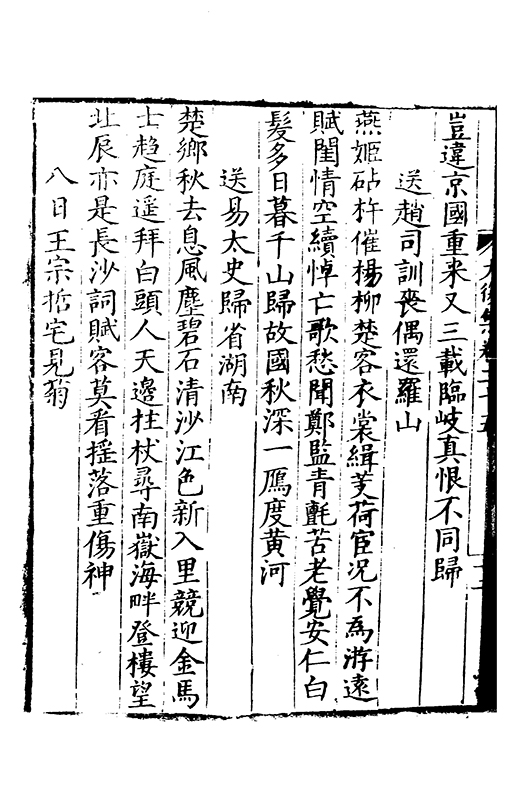 豈違京國重来又三載臨岐真恨不同歸
送趙司訓喪偶還羅山
燕姬砧杵催楊柳楚客衣裳緝芰荷宦况不為游遠
賦閨情空續悼亡歌愁聞鄭監青氈苦老覺安仁白
髮多日暮千山歸故國秋深一鴈度黄河
送易太史歸省湖南
楚鄉秋去息風塵碧石清沙江色新入里競迎金馬
士趋庭遥拜白頭人天邉拄杖尋南嶽海畔登樓望
北辰亦是長沙詞賦客莫看摇落重傷神
八日王宗哲宅見菊